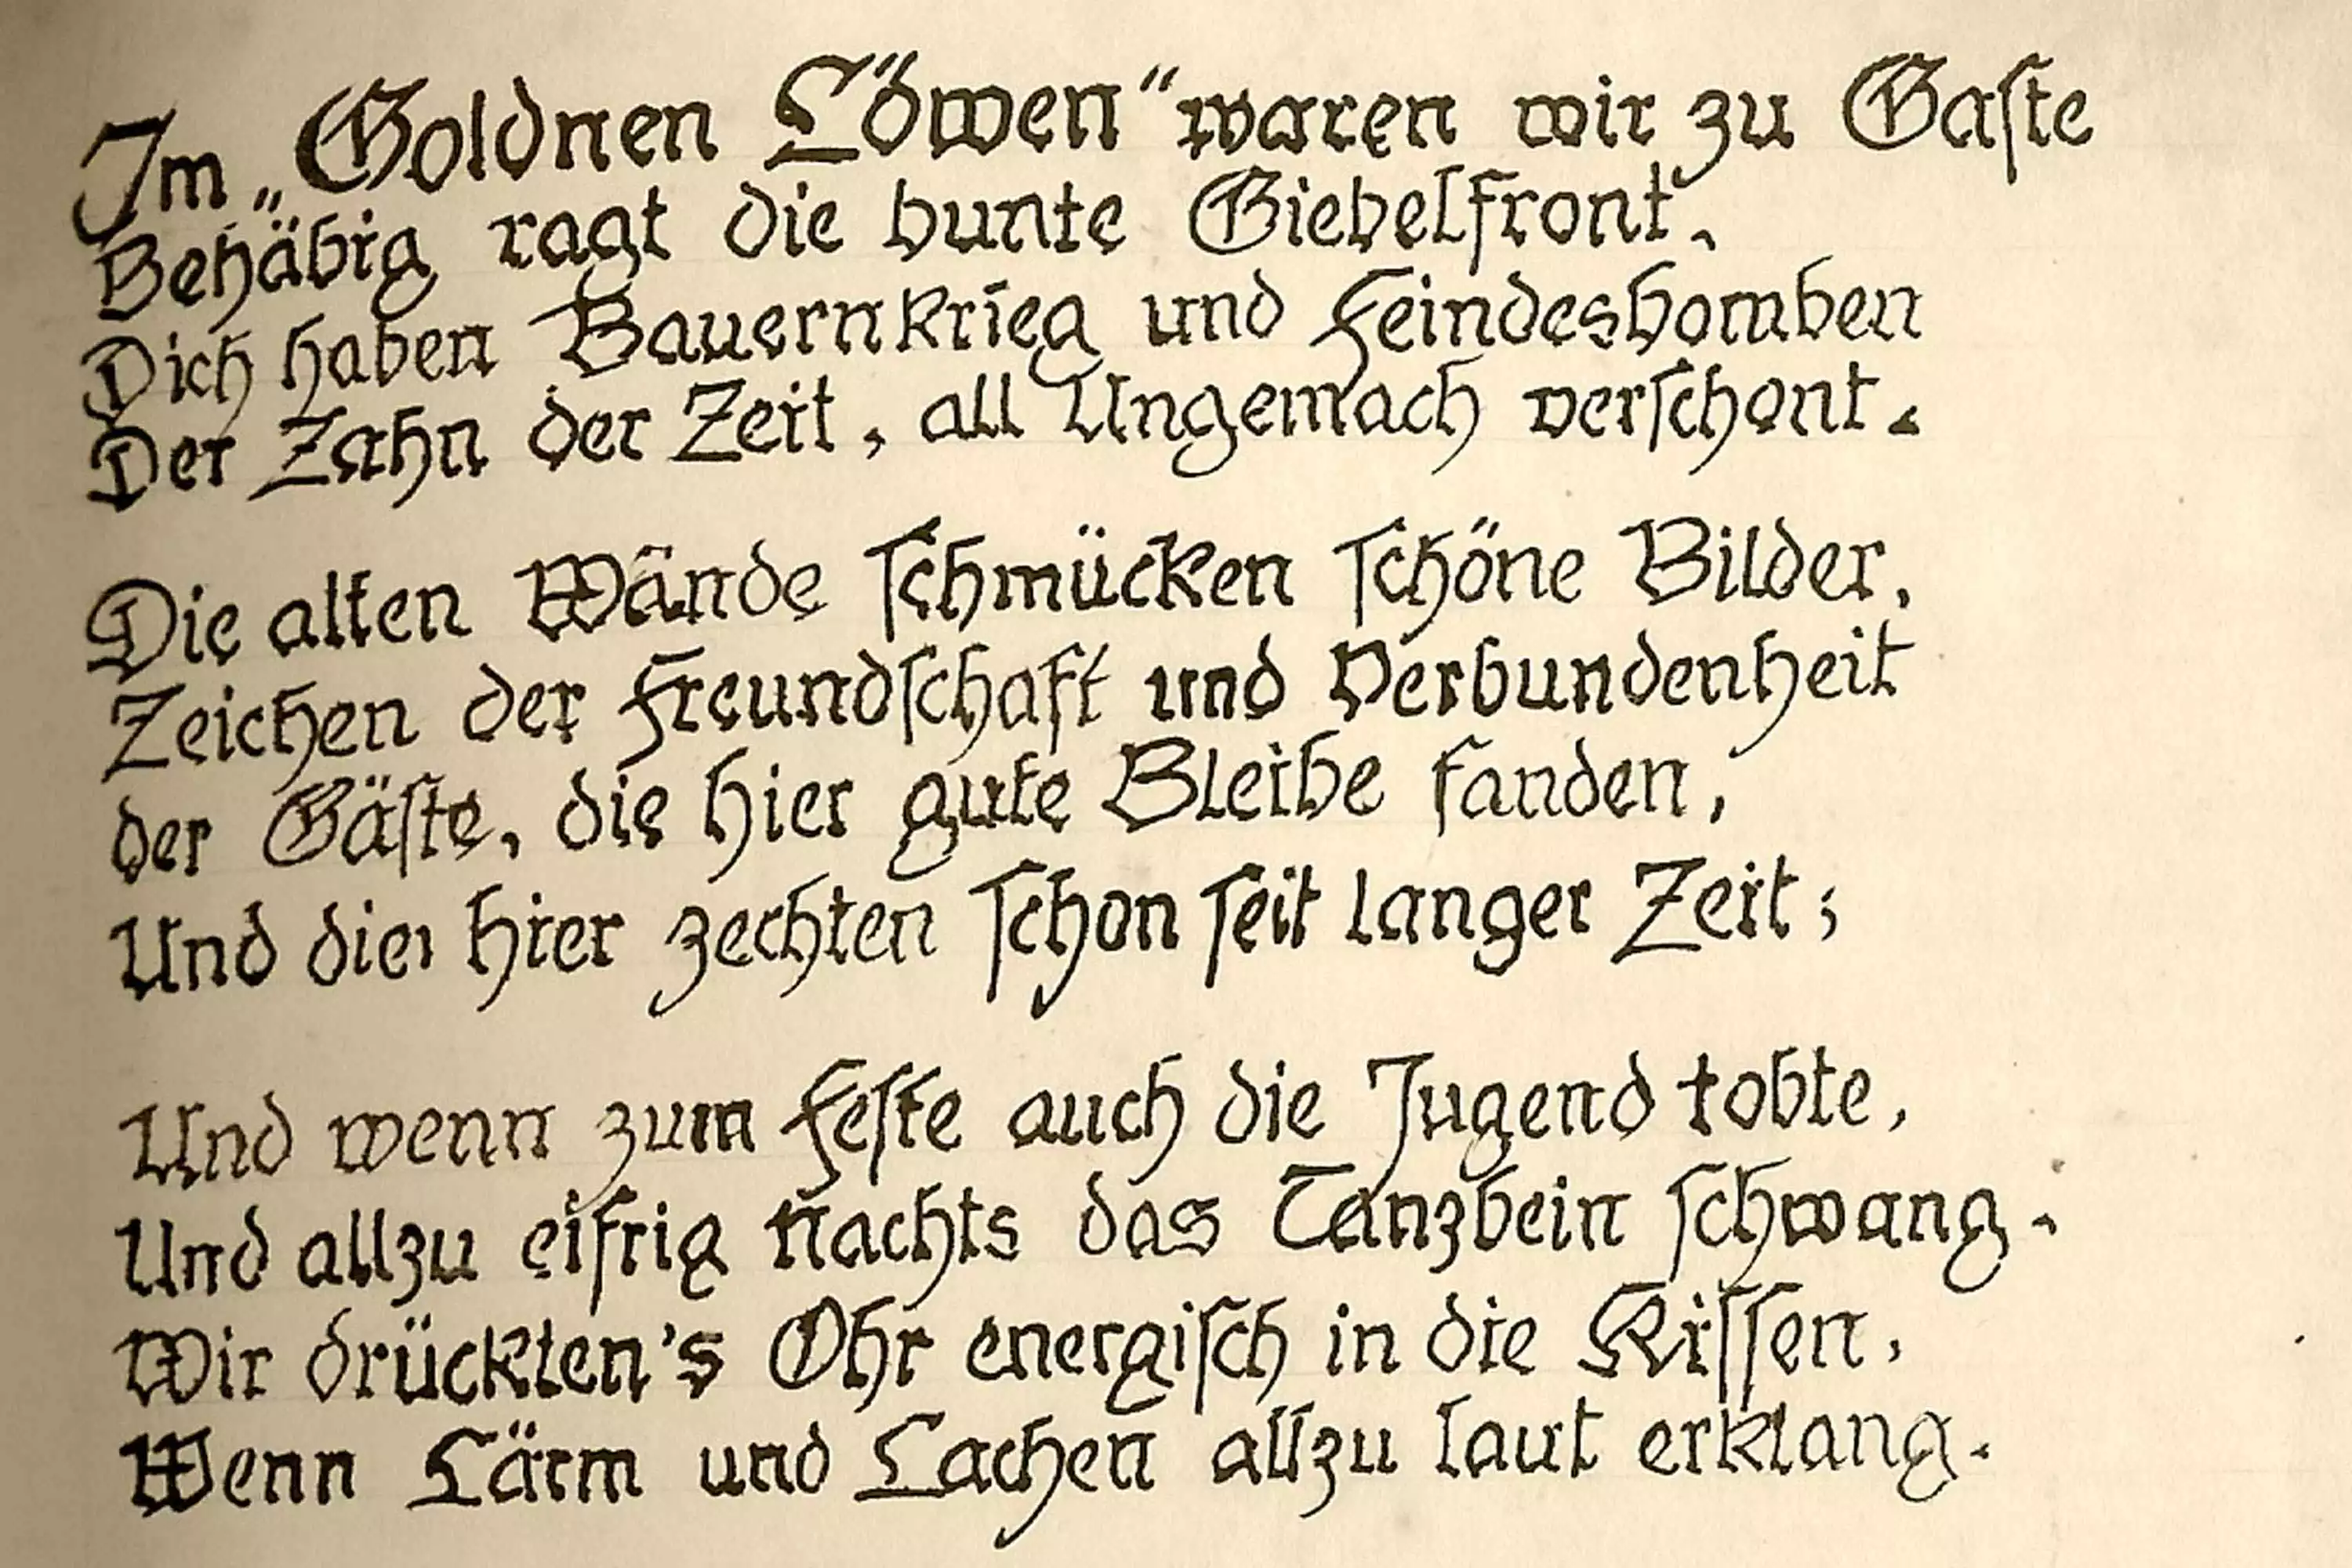 Im „Goldnen Löwen“ waren wir zu Gaste
Behäbig ragt die bunte Giebelfront,
Dich haben Bauernkrieg und Feindesbomben
Der Zahn der Zeit, all Ungemach verschont.
Die alten Wände schmücken schöne Bilder,
Zeichen der Freundschaft und Verbundenheit
der Gäste, die hier gute Bleibe fanden,
Und die hier zechten schon seit langer Zeit;
Und wenn zum Feste auch die Jugend tobte,
Und allzu eifrig nachts das Tanzbein schwang.
Wir drückten's Ohr energisch in die Kissen,
Wenn Lärm und Lachen allzu laut erklang.